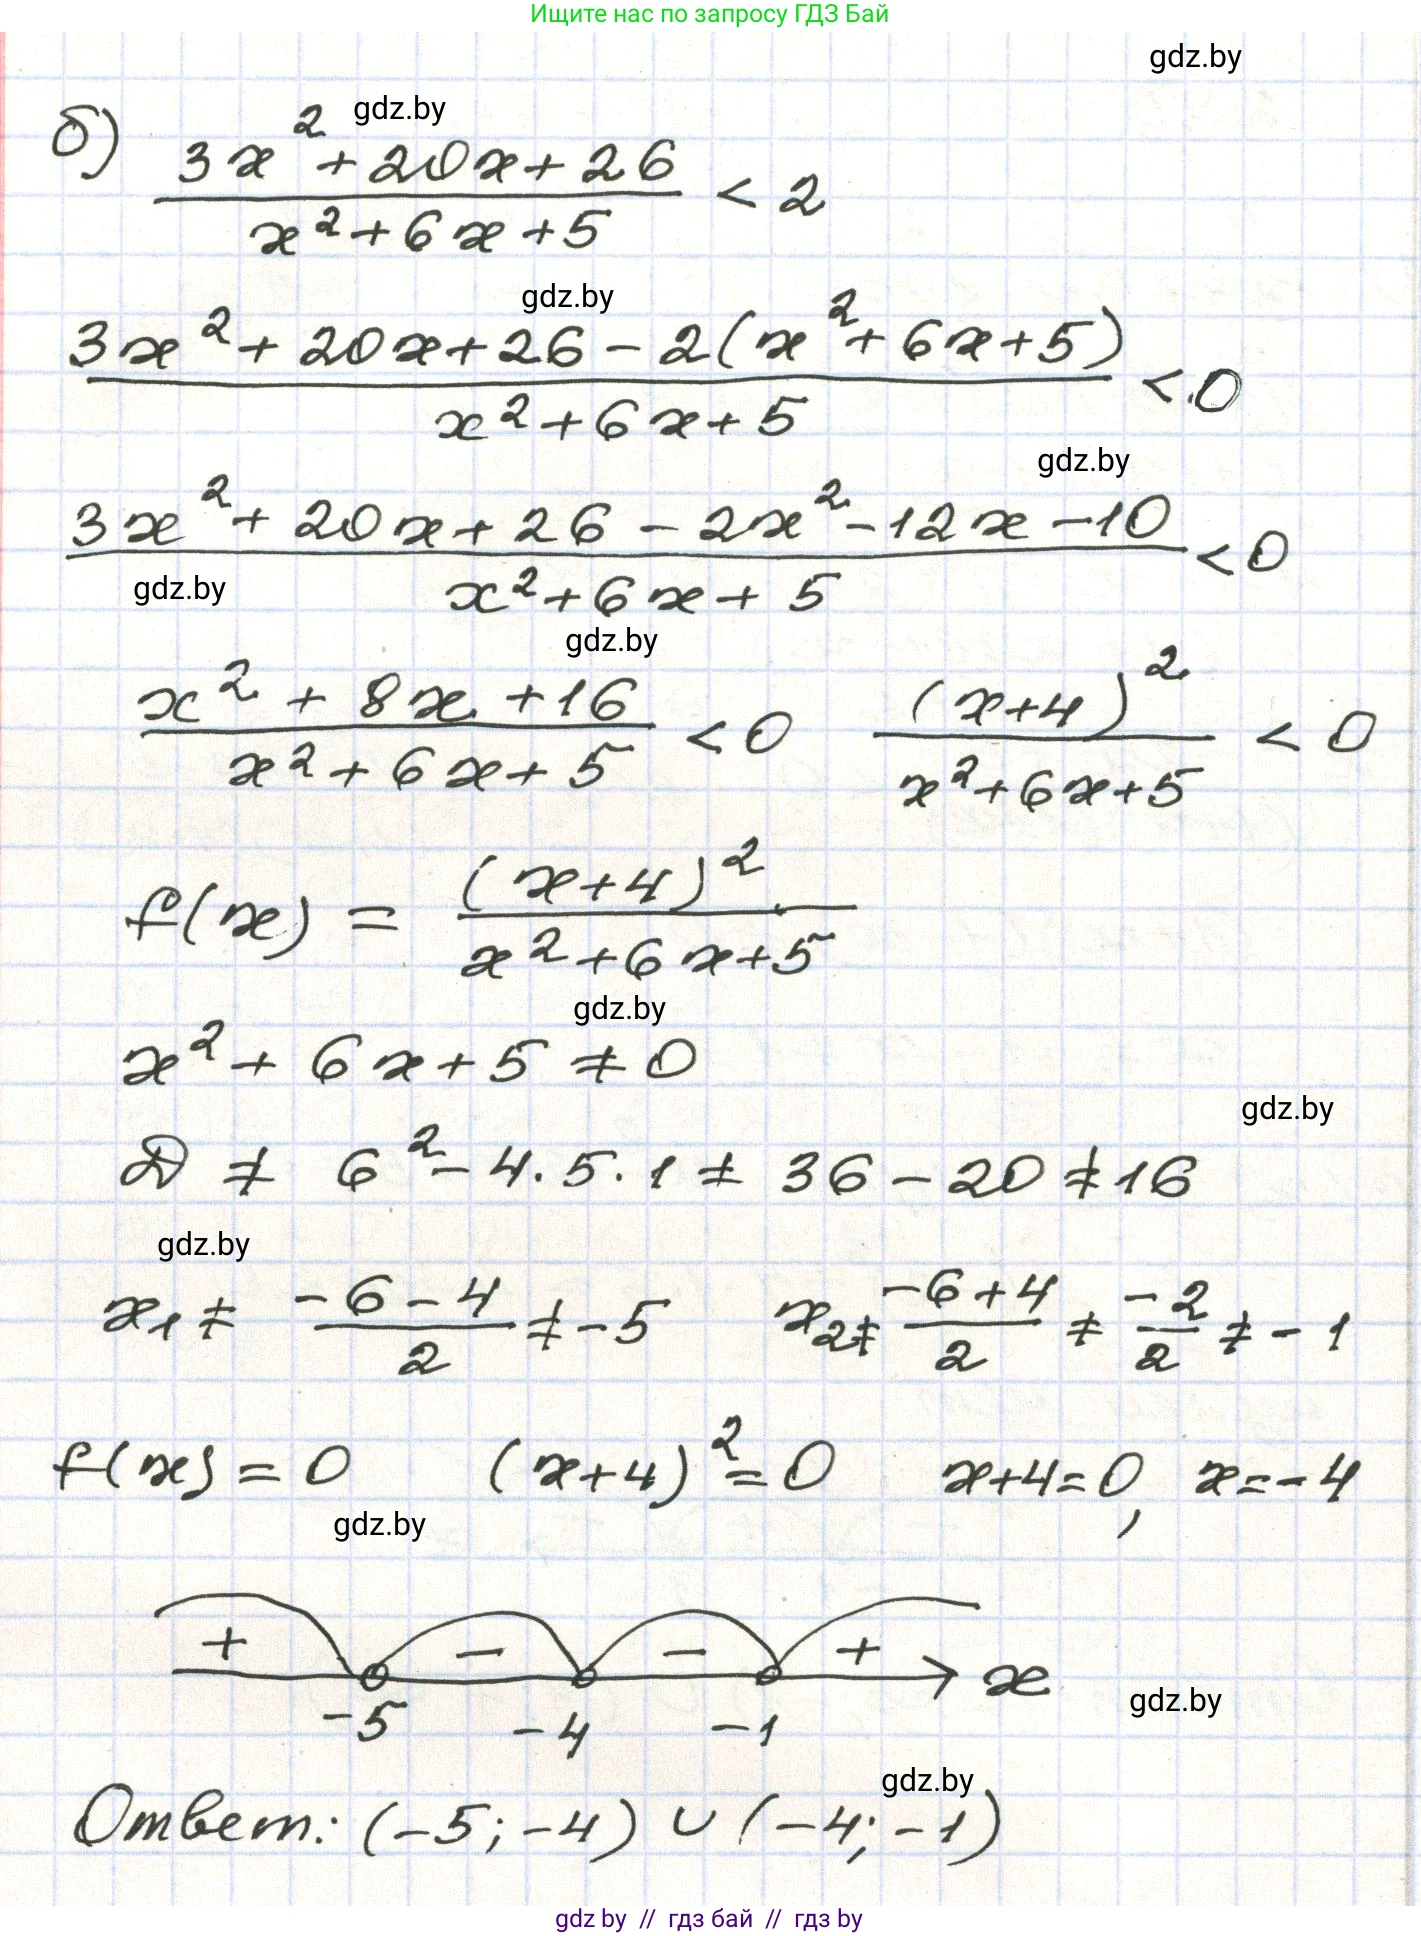 Ищите нас по запросу ГДЗ Бай
gdz.by
gdz.by
б) (3x² + 20x + 26)/(x² + 6x + 5) < 2
gdz.by
(3x² + 20x + 26 - 2(x² + 6x + 5))/(x² + 6x + 5) < 0
gdz.by
(3x² + 20x + 26 - 2x² - 12x - 10)/(x² + 6x + 5) < 0
gdz.by
gdz.by
(x² + 8x + 16)/(x² + 6x + 5) < 0 (x+4)²/(x² + 6x + 5) < 0
f(x) = (x+4)²/(x² + 6x + 5)
gdz.by
x² + 6x + 5 ≠ 0
gdz.by
D ≠ 6² - 4·5·1 ≠ 36 - 20 ≠ 16
gdz.by
x₁ ≠ (-6-4)/2 ≠ -5 x₂ ≠ (-6+4)/2 ≠ -2/2 ≠ -1
f(x) = 0 (x+4)² = 0 x+4=0, x=-4
gdz.by
+ - - + x
-5 -4 -1
gdz.by
gdz.by
Ответ: (-5; -4) ∪ (-4; -1)
gdz by // гдз бай // гдз by